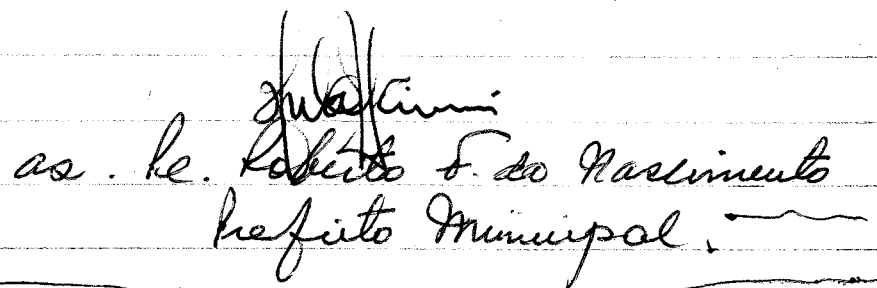 as. Pe. Roberto F. do Nascimento
Prefeito Municipal.